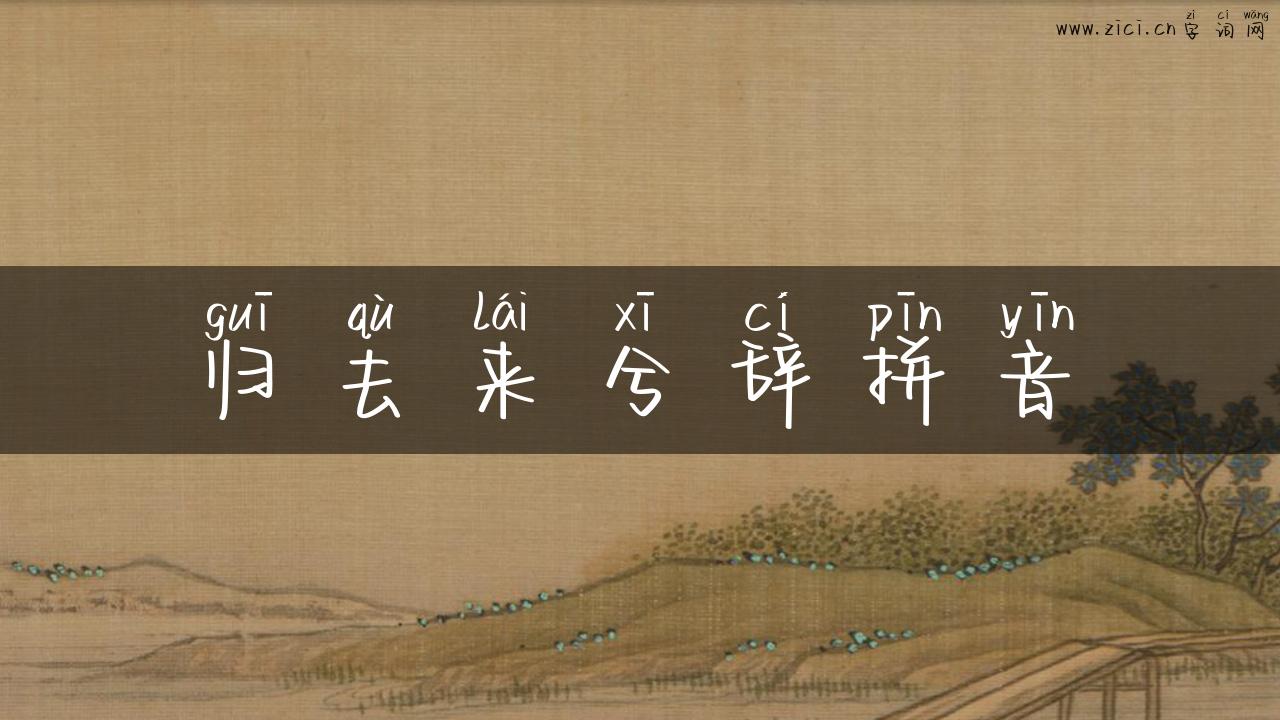 zì cí wǎng
www.zici.cn字词网
guī qù lái xī cí pīn yīn
归去来兮辞拼音